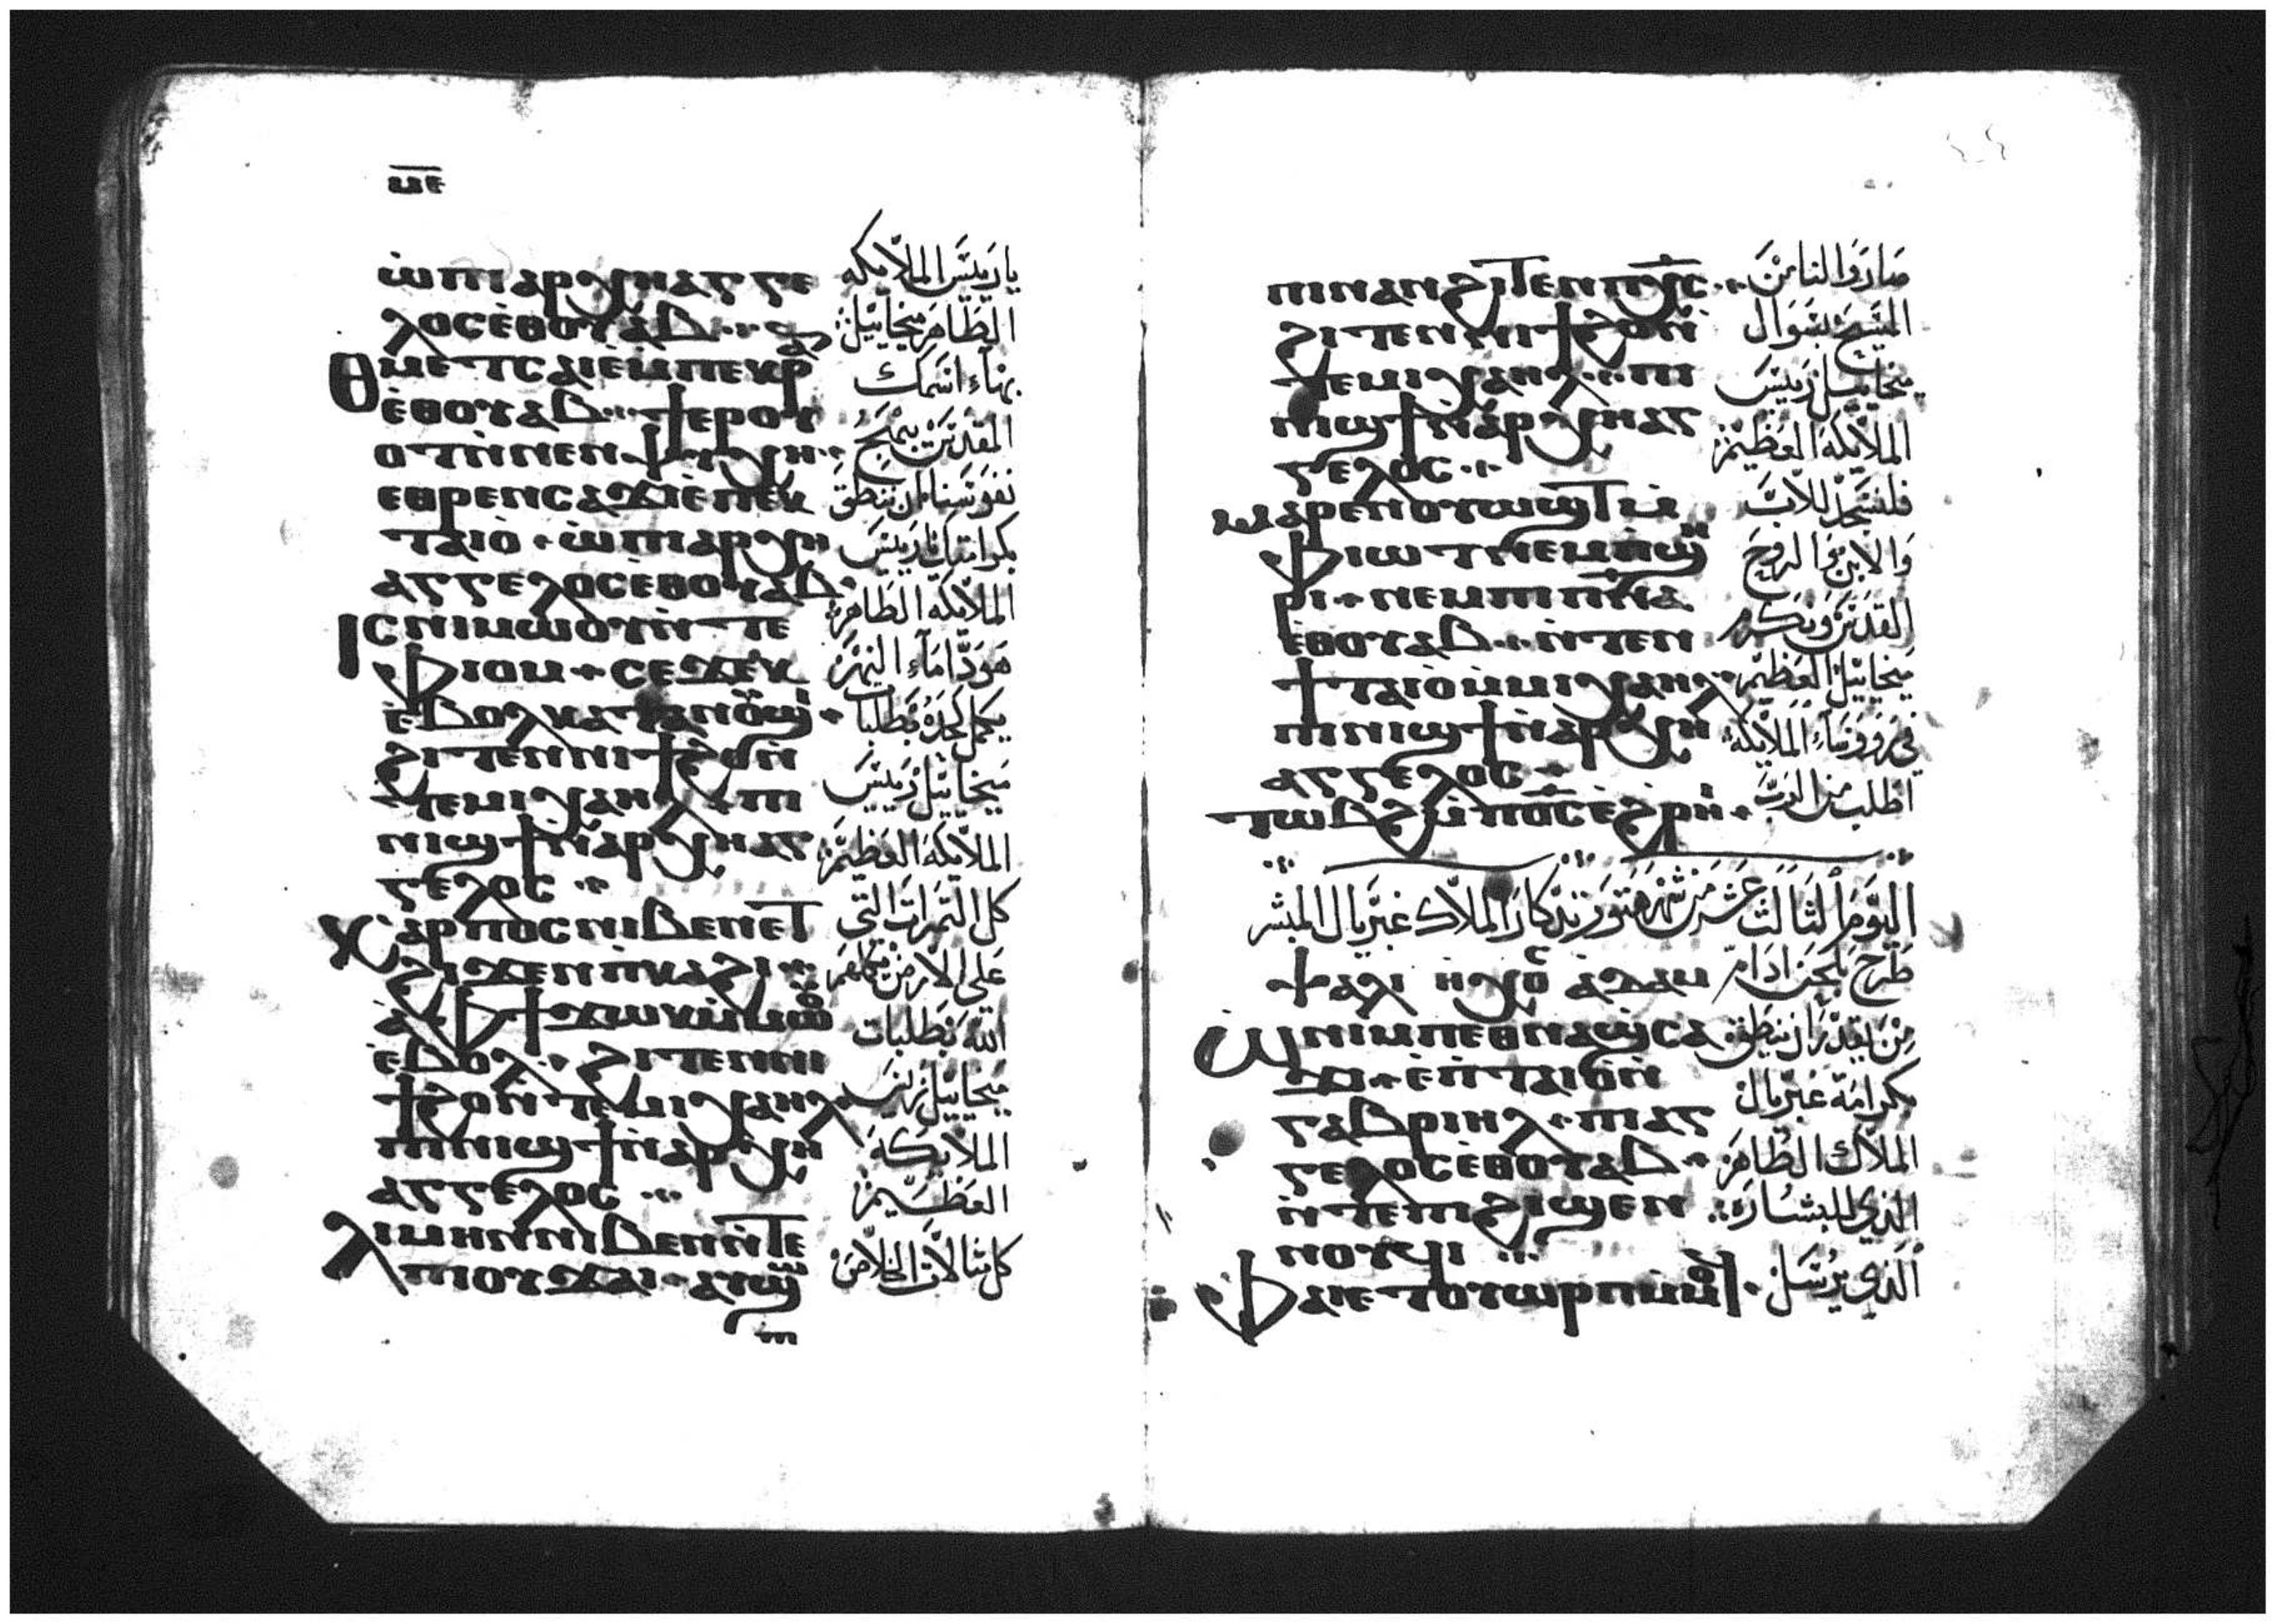 ⲙⲉ
ⲱ̀ⲡⲓⲁⲣⲭⲏⲁⲅⲅⲉ
ⲗⲟⲥⲉ̀ⲑⲟⲩⲁⲃ
ⲑⲙⲉⲧⲥⲁⲓⲉⲙⲡⲉⲕⲣ
ⲉ̀ⲑⲟⲩⲁⲃ ϯⲉⲣⲟⲩ
ⲟⲧⲛ̀ⲛⲉⲛⲯⲩⲭⲏ
ⲉⲑⲣⲉⲛⲥⲁϫⲓⲉ̀ⲡⲉⲕ
ⲧⲁⲓⲟ̀ ⲱ̀ⲡⲓⲁⲣⲭⲏ
ⲁⲅⲅⲉⲗⲟⲥⲉⲑⲟⲩⲁⲃ
ⲓⲥⲛⲓⲙⲱⲟⲩⲛ̀ⲧⲉ
ⲫⲓⲟⲙ ⲥⲉϫⲉⲕ
ⲉ̀ⲃⲟⲗⲕⲁⲧⲁⲡⲟ̅ϣⲓ
ϩⲓⲧⲉⲛⲛⲓϯϩⲟⲛ̀
ⲧⲉⲙⲓⲭⲁⲏⲗ ⲡⲓ
ⲛⲓϣϯⲛ̀ⲁⲣⲭⲏⲁⲅ
ⲅⲉⲗⲟⲥ
ⲕⲁⲣⲡⲟⲥⲛⲓⲃⲉⲛⲉⲧ
ϩⲓϫⲉⲛⲡ̀ⲕⲁϩⲓ
ⲁ̀ⲫϯϫⲱⲕⲙ̀ⲙⲱⲟⲩ
ⲉ̀ⲃⲟⲗ ϩⲓⲧⲉⲛⲛⲓ
ϯϩⲟⲛ̀ⲧⲉⲙⲓⲭⲁⲏⲗ
ⲡⲓⲛⲓϣϯⲛ̀ⲁⲣⲭⲏ
ⲁⲅⲅⲉⲗⲟⲥ
ⲗⲓⲙⲏⲛⲛⲓⲃⲉⲛⲛ̀ⲧⲉ
ⲡⲓⲟⲩϫⲁⲓ ⲁⲩϣ
ⲡ
يا رييس الملايكه
الطاهر ميخاييل
بهاء اسمك
المقدس يبهج
نفوسنا ان ننطق
بكرامتك يا رييس
الملايكه الطاهر
هوذا ماء النهر
يكمل كحده بطلبات
ميخاييل رييس
الملايكه العظيم
كل الثمرات التى
على الارض كملهم
الله بطلبات
ميخاييل رييس
الملايكه
العظيم
كل مثالات الخلاص
ⲡⲓⲛⲁⲛϩⲓⲧⲉⲛⲡⲭ̅ⲥ̅
ϩⲓⲧⲉⲛⲛⲓϯϩⲟⲛ̀
ⲧⲉⲙⲓⲭⲁⲏⲗ ⲡⲓ
ⲛⲓϣϯⲛ̀ⲁⲣⲭⲏⲁⲅ
ⲅⲉⲗⲟⲥ
ⲙⲁⲣⲉⲛⲟⲩⲱϣⲧⲙ̀
ⲫⲓⲱⲧⲛⲉⲙⲡ̀ϣⲏ
ⲣⲓ ⲛⲉⲙⲡⲓⲡⲛ̅ⲁ̅
ⲉⲑⲟⲩⲁⲃ ⲛ̀ⲧⲉⲛ
ϯⲧⲁⲓⲟ̀ⲙ̀ⲙⲓⲭⲁⲏⲗ
ⲡⲓⲛⲓϣϯⲛ̀ⲁⲣⲭⲏ
ⲁⲅⲅⲉⲗⲟⲥ
ⲧⲱⲃϩⲙ̀ⲡⲟ̅ⲥ̅ⲉ̀ϩⲣⲏⲓ
صاروا لنا من
المسيح بسوال
ميخاييل رييس
الملايكه العظيم
فلنسجد للاب
والابن والروح
القدس ونكرم
ميخاييل العظيم
فى رووساء الملايكه
اطلب من الرب
اليوم الثالث عشر من شهر هتور تذكار الملاك غبريال المبشر
ⲯⲁⲗⲓ ⲛ̀ⲏⲭⲟⲥ ⲁⲇⲁⲙ طرح بلحن ادام
ⲱ̀ⲛⲓⲙⲡⲉⲑⲛⲁϣ̀ⲥⲁ
ϫⲓ ⲉ̀ⲡ̀ⲧⲁⲓⲟⲛ̀
ⲅⲁⲃⲣⲓⲏⲗ ⲡⲓⲁⲅ
ⲅⲉⲗⲟⲥⲉ̀ⲑⲟⲩⲁⲃ
ⲛ̀ⲧⲉⲡⲓϩⲓϣⲉⲛ
ⲛⲟⲩϥⲓ
ⲫⲁⲓⲉⲧⲟⲩⲱⲣⲡⲙ̀ⲙⲟϥ
من يقدر ان ينطق
بكرامة غبريال
الملاك الطاهر
الذي للبشاره
الذي يرسل